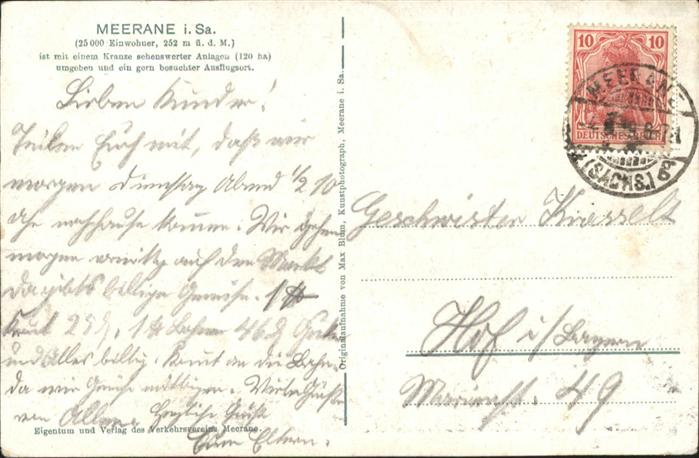 MEERANE i. Sa.
(25 000 Einwohner, 252 m ü. d. M.)
ist mit einem Kranze sehenswerter Anlagen (120 ha)
umgeben und ein gern besuchter Ausflugsort.
Lieben Kinder!
Teilen Euch mit, daß wir
morgen Dienstag Abend 1/2 10
Uhr nachhause kommen. Wir gehen
morgen auf den Markt
da gibts billige Gemüse. 1 ℔
Kraut 25 ₰, 1 ℔ Bohnen 46 ₰
und alles billig. Kommt an die Bahn
da wir Viele Grüße
von Allen. Herzliche Grüße
Eure Eltern.
Eigentum und Verlag des Verkehrsvereins Meerane.
Originalaufnahme von Max Blum, Kunstphotograph, Meerane i. Sa.
10 10
DEUTSCHES REICH
MEERANE
(SACHS.)
Geschwister Krasselt
Hof i/Bayern
Marienst. 49